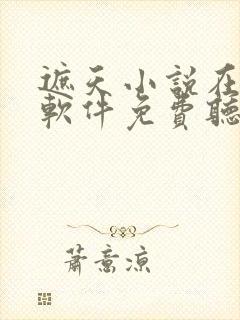 遮天小説在
軟件免費聽
蕭意涼